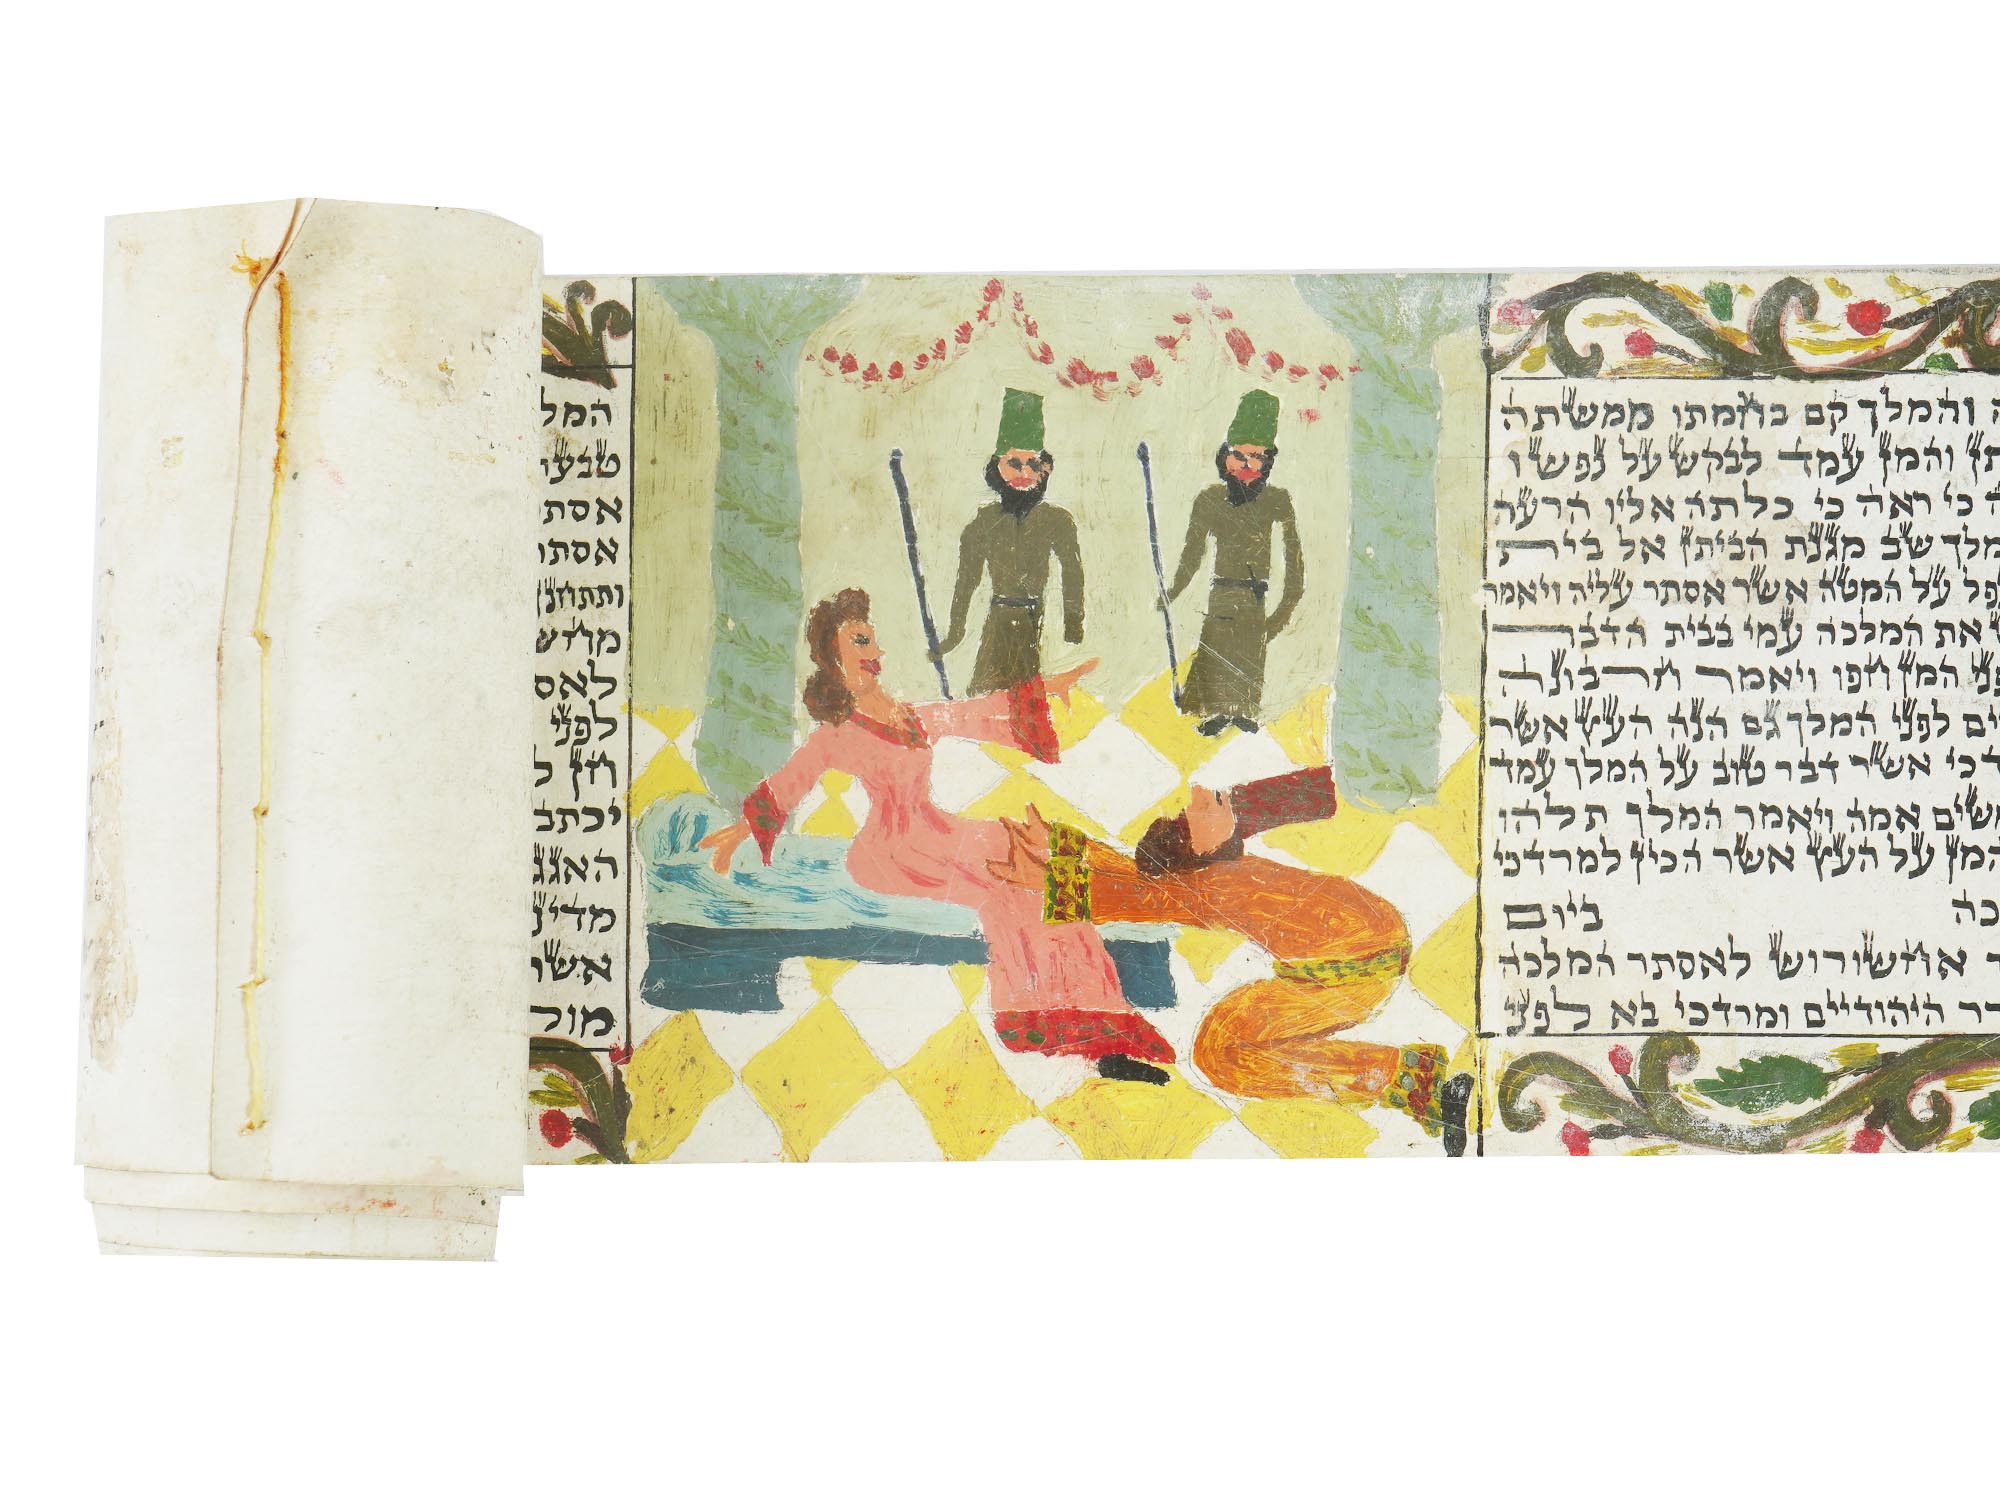 ה והמלך קם בחמתו ממשתה
תן והמן עמד לבקש על נפשו
ה כי ראה כי כלתה אליו הרעה
מלך שב מגנת הביתן אל בית
נפל על המטה אשר אסתר עליה ויאמר
ש את המלכה עמי בבית הדבר
פני המן וחפו ויאמר חרבונה
ים לפני המלך גם הנה העץ אשר
דכי אשר דבר טוב על המלך עמד
משים אמה ויאמר המלך תלהו
המן על העץ אשר הכין למרדכי
כה ביום
ך אחשורוש לאסתר המלכה
רר היהודיים ומרדכי בא לפני
המל
טבע
אסת
אסת
ותתחנן
מחש
לאס
לפני
חן ל
יכתב
האגג
מדינ
אשר
מול